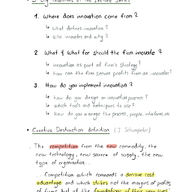 1. Where does innovation come from?
• What defines innovation?
• Who innovates and why?
2. What & What for should the firm innovate?
• innovation as part of firm's strategy?
• how can the firm profit from an innovation?
3. How do you implement innovation?
• how do you design an innovation process?
• which tools and techniques to use?
• how do you manage the process, people,
• Creative Destruction definition (J. Schumpeter)
1. The competition from the new commodity, the
new technology, new source of supply, the new
type of organization
Competition which commands a decisive cost
advantage and which strikes not the margins of profits